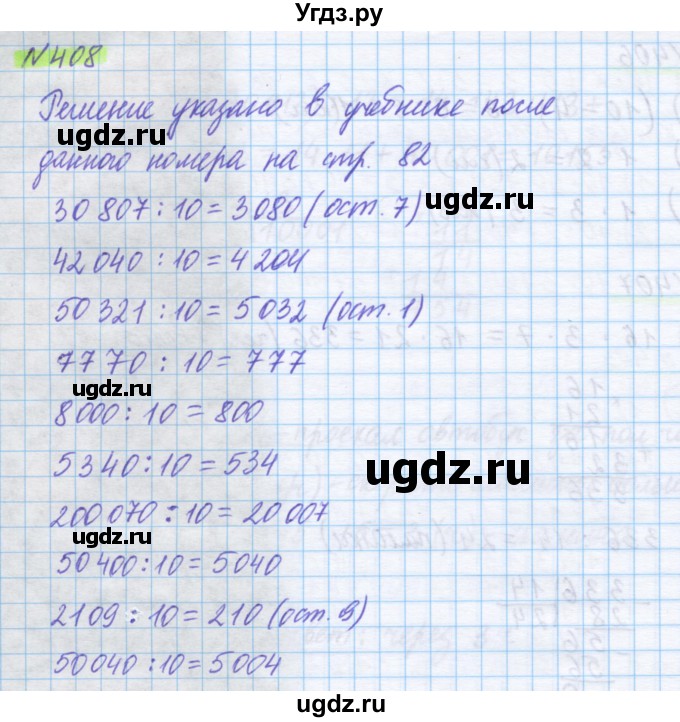 Угдз.ру
№408
Решение указано в учебнике после
ugdz.ru
данного номера на стр. 82
30 807 : 10 = 3 080 (ост. 7)
ugdz.ru
ugdz.ru
42 040 : 10 = 4 204
50 321 : 10 = 5 032 (ост. 1)
7770 : 10 = 777
ugdz.ru
8000 : 10 = 800
5340 : 10 = 534
ugdz.ru
200 070 : 10 = 20 007
ugdz.ru
50 400 : 10 = 5040
2109 : 10 = 210 (ост. 9)
50040 : 10 = 5004
ugdz.ru